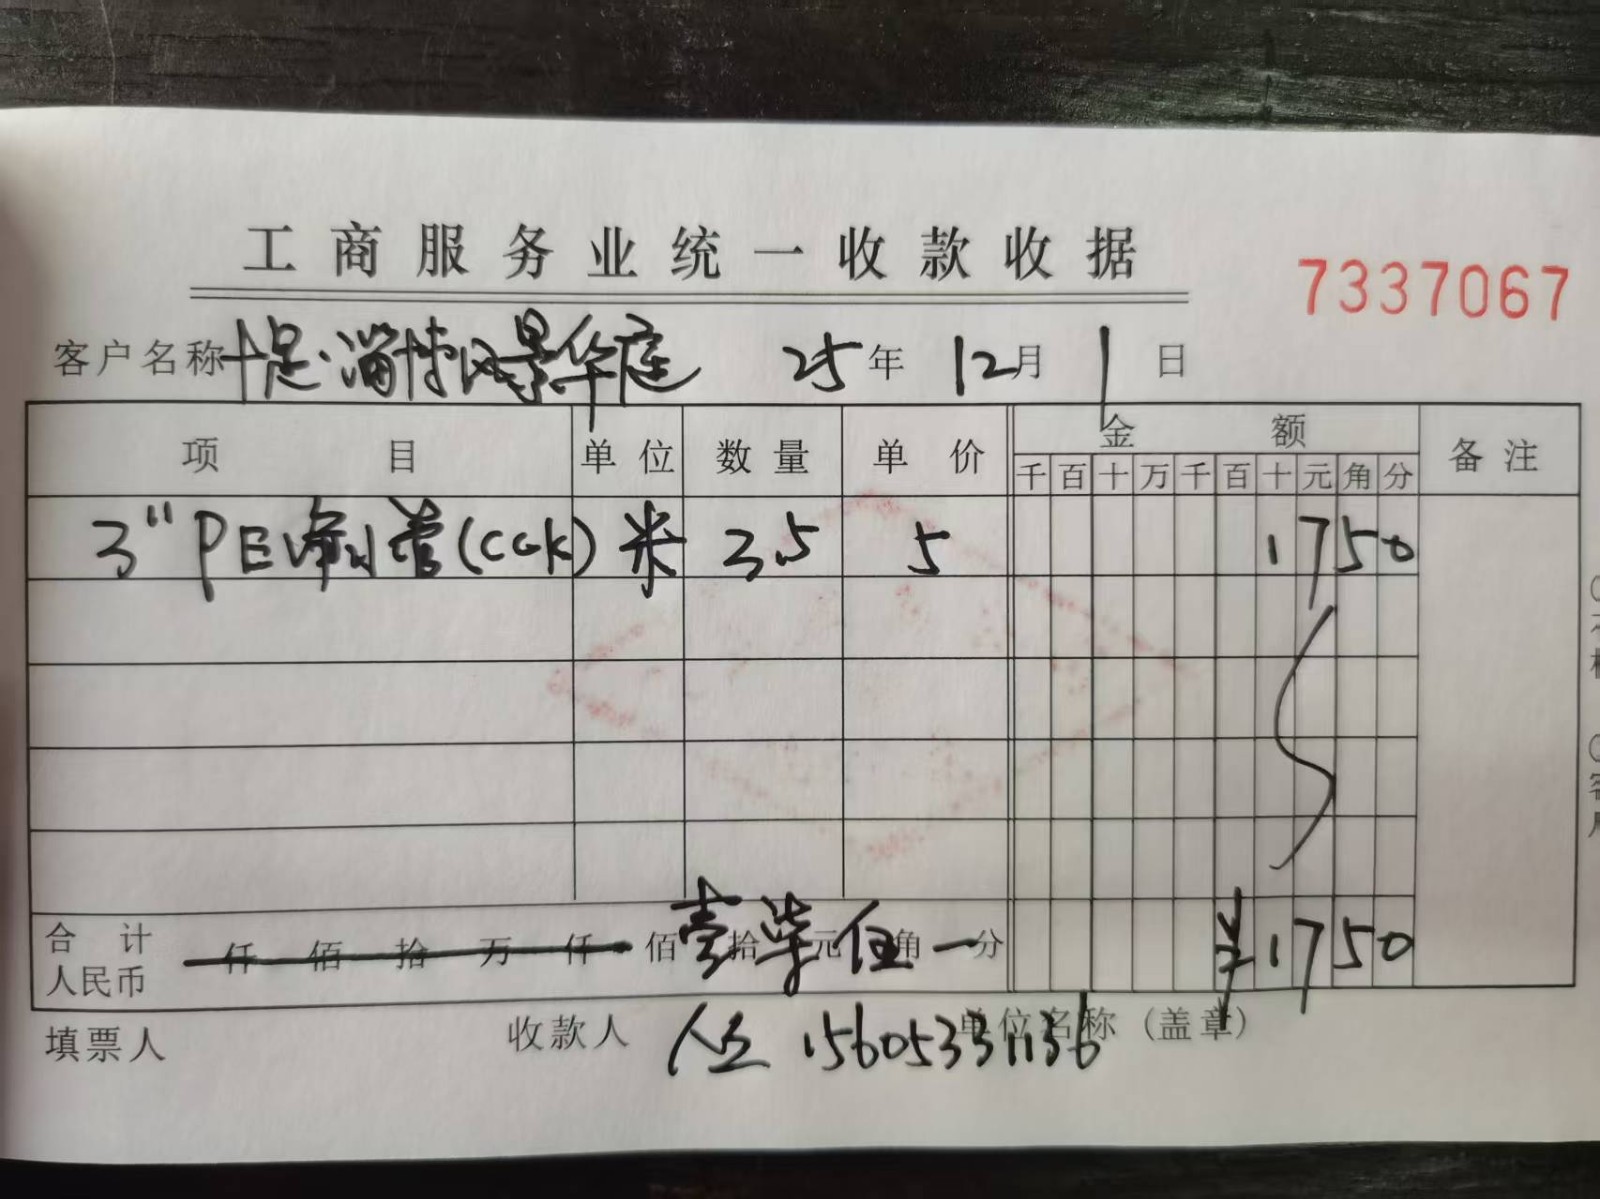 工商服务业统一收款收据
7337067
客户名称 十足·淄博风景华庭 25年12月1日
项目 单位 数量 单价 金额 备注
千 百 十 万 千 百 十 元 角 分
3" PE 管(CCK) 米 3.5 5 1750
合计 人民币 仟 佰 拾 万 仟 佰 壹拾 柒元 伍角 一分 ¥1750
填票人 收款人 15605331136 单位名称(盖章)